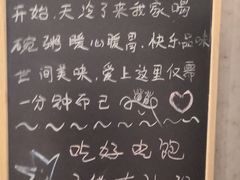 开始,天冷了来我家喝
碗粥暖心暖胃,快乐品味
世间美味,爱上这里仅需
一分钟而已
吃好吃饱